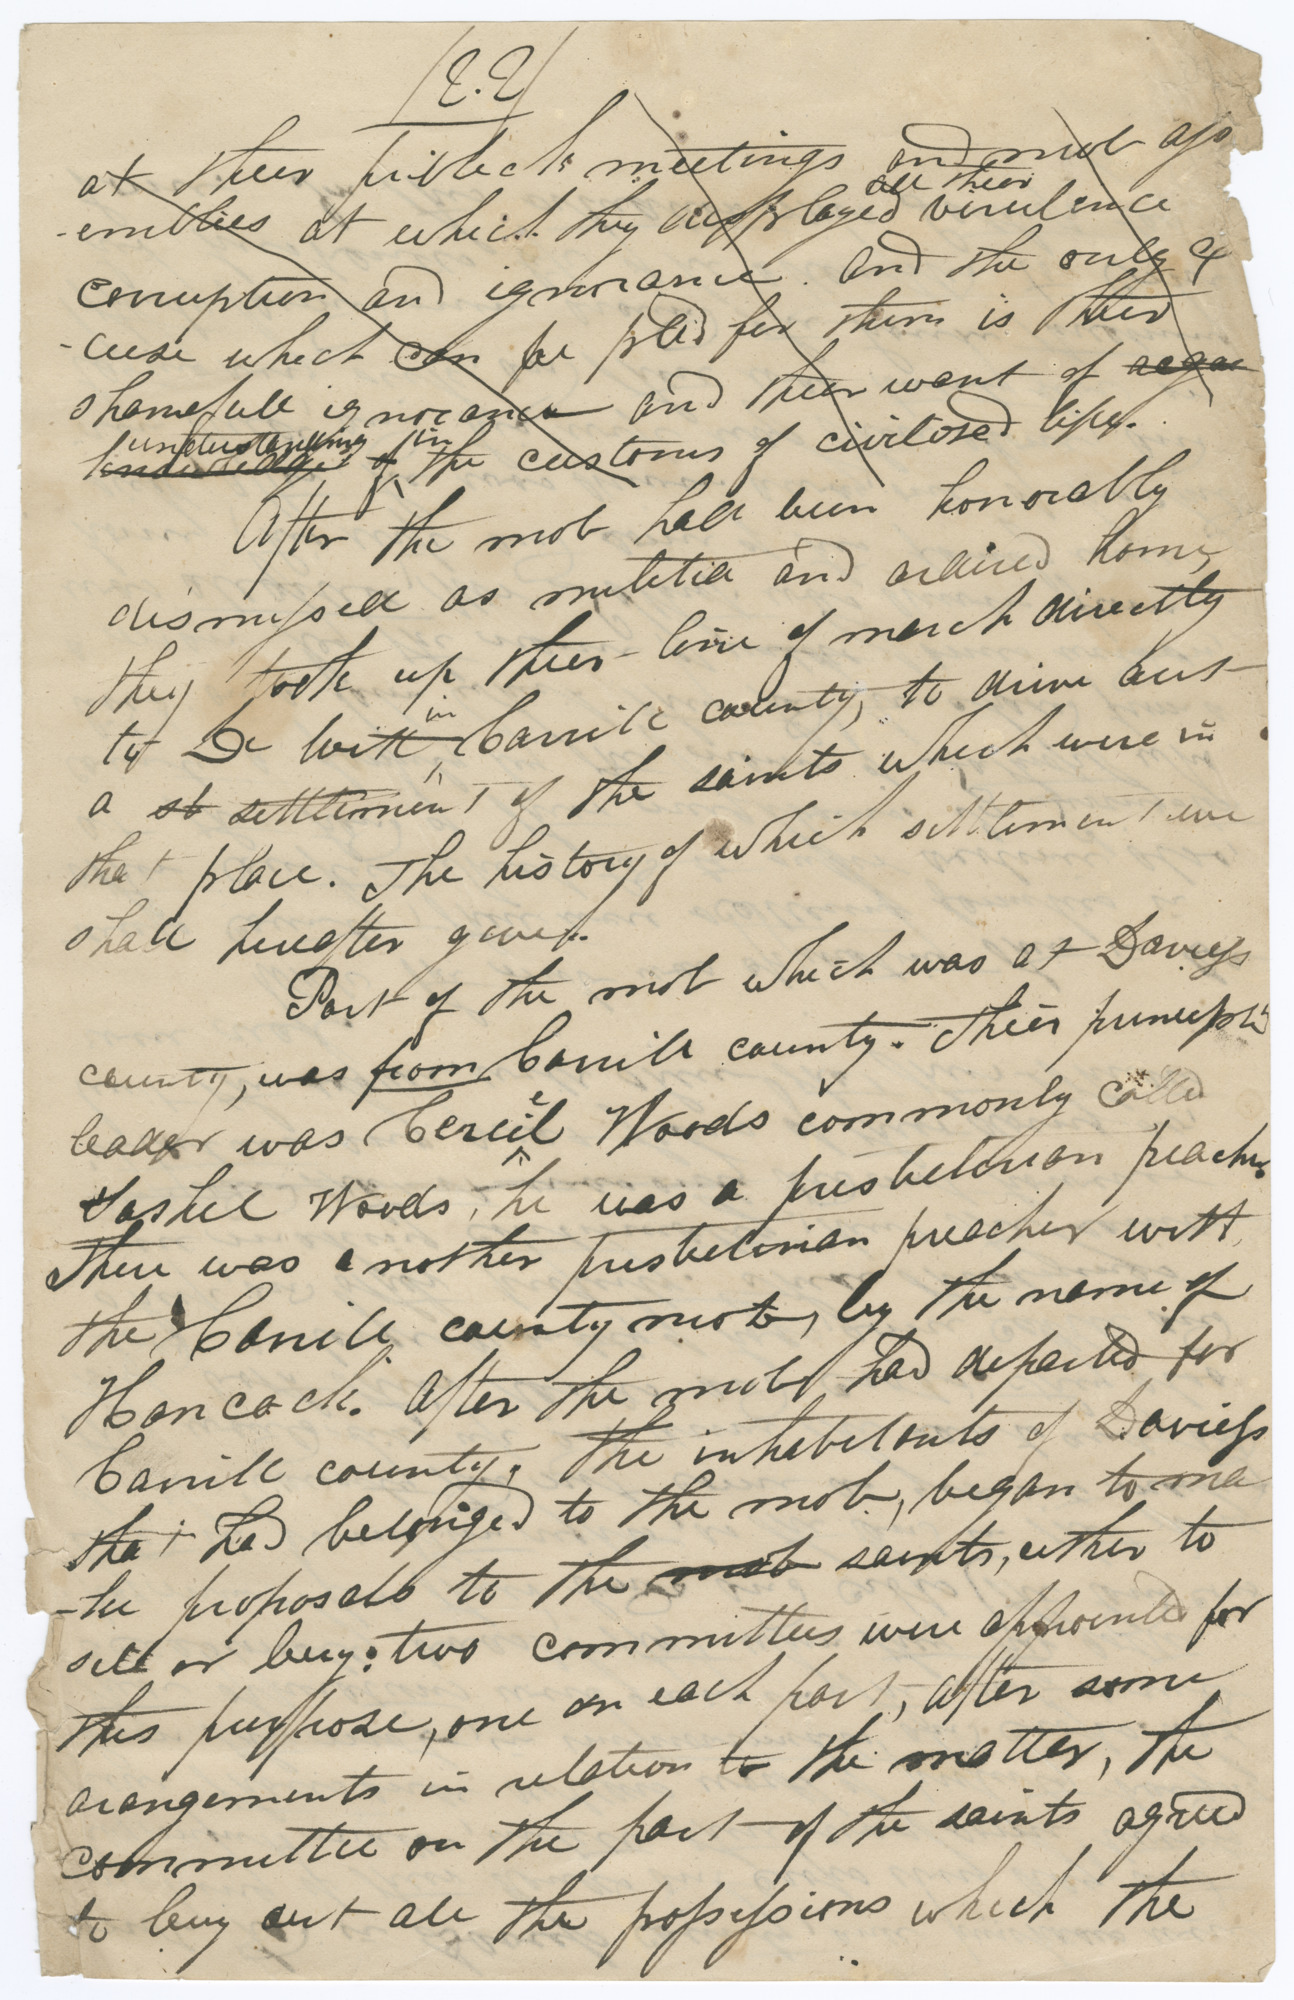 (E.E)
at their publick meetings and mob ass
-emblies at which they displayed all their virulence
corruption and ignorance. and the only ex
-cuse which can be pled for them is their
shamefull ignorance and their want of acqua
knowledge of understanding in the customs of civilised life.
After the mob had been honorably
dismissed as militia and ordired home,
they took up their line of march directly
to De Witt in Carrill county, to drive out
a st settlement of the saints which were in
that place. The history of which settlement we
shall hereafter given.
Part of the mob which was at Daviess
county, was from Carrill county. Their principle
leader was Cereiel Woods commonly called
Sashel Woods, he was a presbeterian preacher.
There was another presbeterian preacher with
the Carrill county mob, by the name of
Hancock. After the mob had departed for
Carrill county, the inhabetants of Daviess
that had belonged to the mob, began to ma
-ke proposals to the mob saints, either to
sell or buy: two committees were appointed for
this purpose, one on each part, after some
arangements in relation to the matter, the
committee on the part of the saints agreed
to buy out all the possessions which the